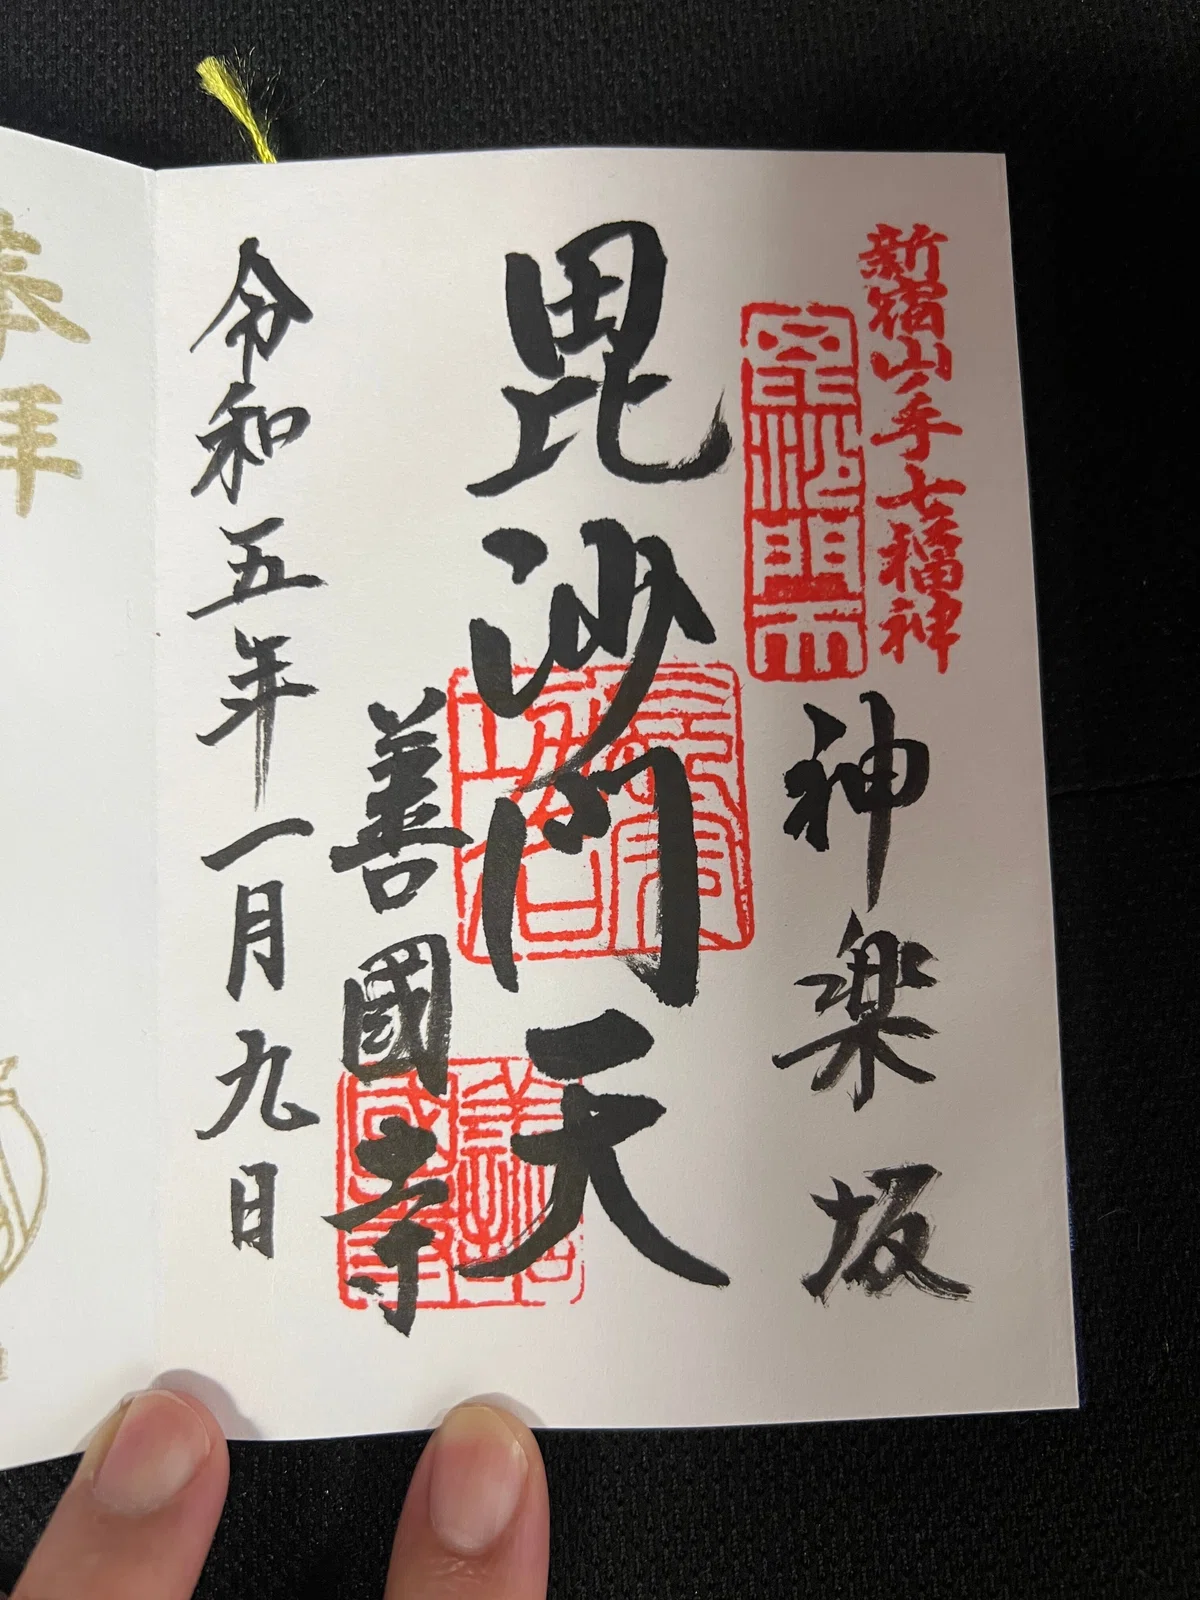 新宿山ノ手七福神
神楽坂
毘沙門天
善國寺
令和五年一月九日
奉拝